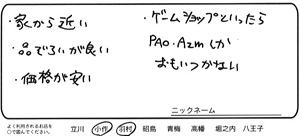 ・家から近い
・品ぞろいが良い
・価格が安い
・ゲームショップといったら
PAO・A2mしか
おもいつかない
ニックネーム
よく利用されるお店を
○で囲んでください。
立川 小作 羽村 昭島 青梅 高幡 堀之内 八王子